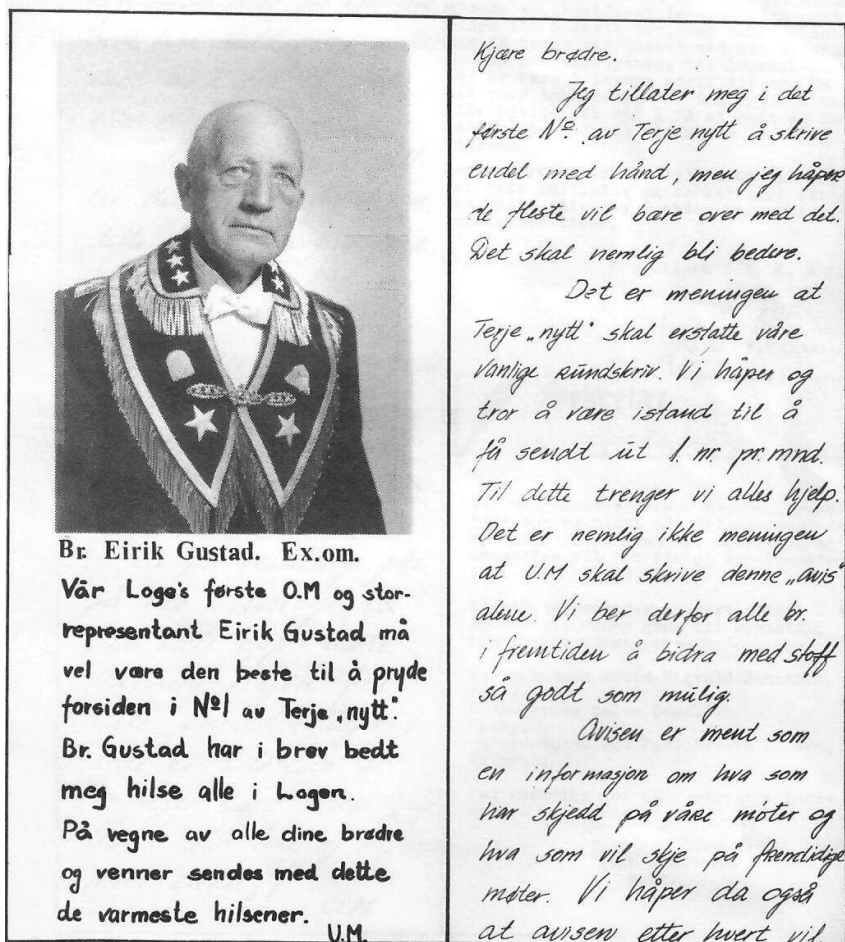 Br. Eirik Gustad. Ex.om.
Vår Loge's første O.M og stor-
representant Eirik Gustad må
vel være den beste til å pryde
forsiden i Nº1 av Terje „nytt".
Br. Gustad har i brev bedt
meg hilse alle i Logen.
På vegne av alle dine brødre
og venner sendes med dette
de varmeste hilsener.
U.M.
Kjære brødre.
Jeg tillater meg i det
første Nº. av Terje nytt å skrive
endel med hånd, men jeg håper
de fleste vil bære over med det.
Det skal nemlig bli bedere.
Det er meningen at
Terje „nytt" skal erstatte våre
vanlige rundskriv. Vi håper og
tror å være istand til å
få sendt ut 1. nr. pr. mnd.
Til dette trenger vi alles hjelp.
Det er nemlig ikke meningen
at U.M skal skrive denne „avis"
alene. Vi ber derfor alle br.
i fremtiden å bidra med stoff
så godt som mulig.
Avisen er ment som
en informasjon om hva som
har skjedd på våre møter og
hva som vil skje på fremtidige
møter. Vi håper da også
at avisen etter hvert vil